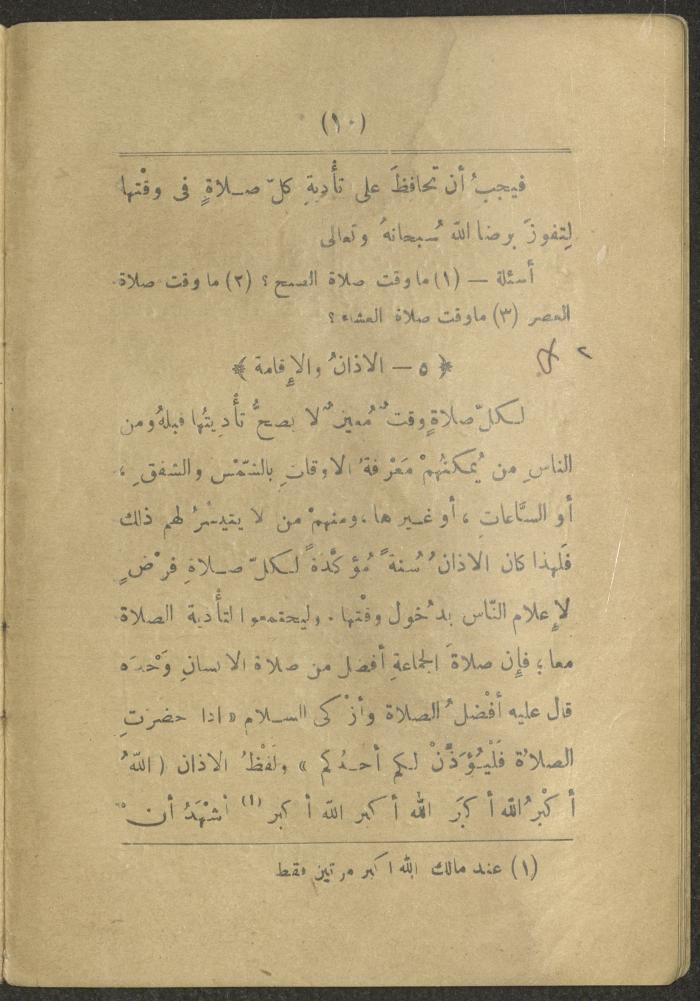 (١٠)
فيجبُ أن تحافظَ على تأْديةِ كلّ صلاةٍ فى وقْتها
لِتفوزَ برضا اللّه سُبحانهُ وتعالى
أسئلة — (١) ما وقت صلاة الصبح ؟ (٢) ما وقت صلاة
العصر (٣) ما وقت صلاة العشاء ؟
﴿ ٥ — الاذانُ والإِقامة ﴾ ٢
لكلّ صلاةٍ وقتٌ مُعينٌ لا يصحُّ تأْدِيتُها قبلهُ ومن
الناسِ من يُمكنُهمْ مَعْرفةُ الاوقاتِ بالشّمْس والشفقِ ،
أو السَّاعاتِ ، أو غيرها ، ومنهمْ من لا يتيسّرُ لهم ذلك
فلهذا كان الاذانُ سُنةً مُؤكَّدةً لكلّ صلاةِ فرْضٍ
لإِعلام النّاس بدُخول وقْتها . وليجتمعوا لتأْدية الصلاة
معا ؛ فإِن صلاةَ الجماعةِ أفضل من صلاة الانسانِ وَحْدَه
قال عليه أفْضلُ الصلاة وأزْكى السلام « اذا حضرَتِ
الصلاةُ فَلْيُؤَذّنْ لكم أحدُكم » ولَفْظُ الاذان ( اللّهُ
أكْبرُ اللّه أكبَر اللّه أكبر اللّه أكبر (١) أشْهَدُ أن
(١) عند مالك اللّه اكبر مرتين فقط